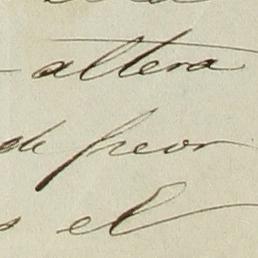 altera
de freor
s el